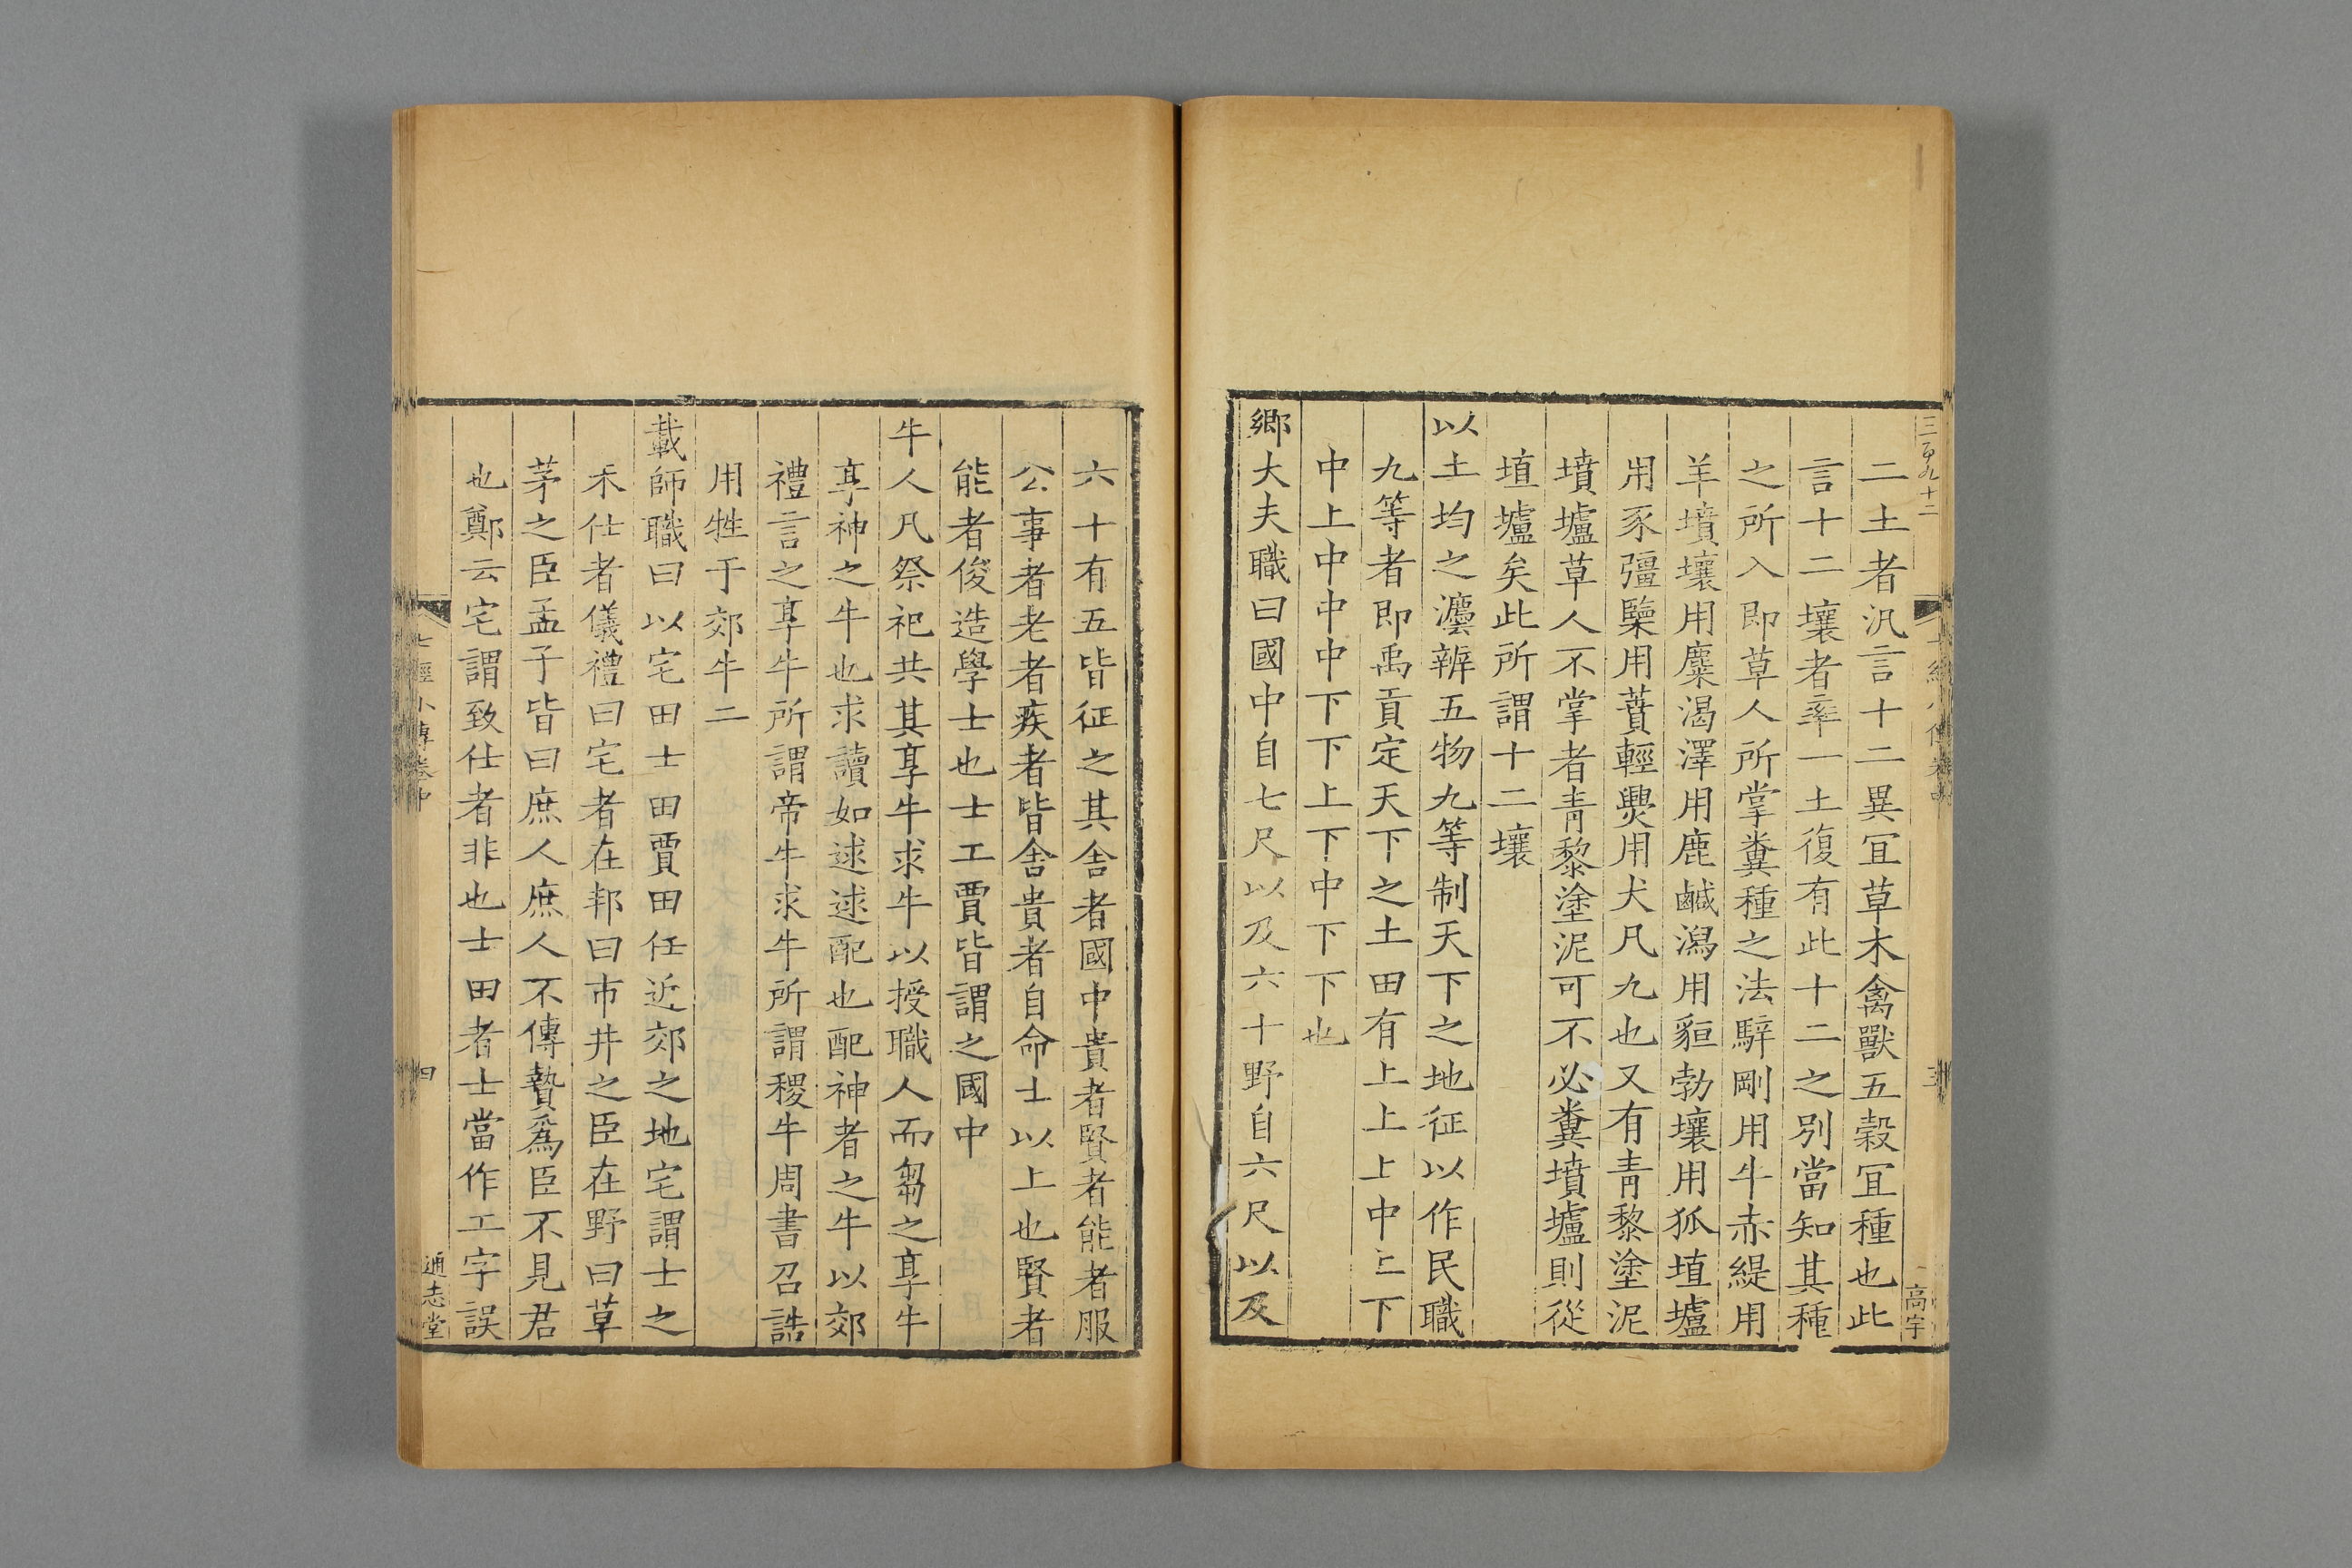 三百九十二
二土者汎言十二異冝草木禽獸五穀冝種也此
言十二壤者率一土復有此十二之別當知其種
之所入即草人所掌糞種之法騂剛用牛赤緹用
羊墳壤用麋渴澤用鹿鹹潟用貆勃壤用狐埴壚
用豕彊㯺用蕡輕㷼用犬凡九也又有青黎塗泥
墳壚草人不掌者青黎塗泥可不必糞墳壚則從
埴壚矣此所謂十二壤
以土均之灋辨五物九等制天下之地征以作民職
九等者即禹貢定天下之土田有上上上中上下
中上中中中下下上下中下下也
鄉大夫職曰國中自七尺以及六十野自六尺以及
高宇
六十有五皆征之其舍者國中貴者賢者能者服
公事者老者疾者皆舍貴者自命士以上也賢者
能者俊造學士也士工賈皆謂之國中
牛人凡祭祀共其享牛求牛以授職人而芻之享牛
享神之牛也求讀如逑逑配也配神者之牛以郊
禮言之享牛所謂帝牛求牛所謂稷牛周書召誥
用牲于郊牛二
載師職曰以宅田士田賈田任近郊之地宅謂士之
未仕者儀禮曰宅者在邦曰市井之臣在野曰草
茅之臣孟子皆曰庶人庶人不傳贄爲臣不見君
也鄭云宅謂致仕者非也士田者士當作工字誤
七經小傳卷中
四
通志堂